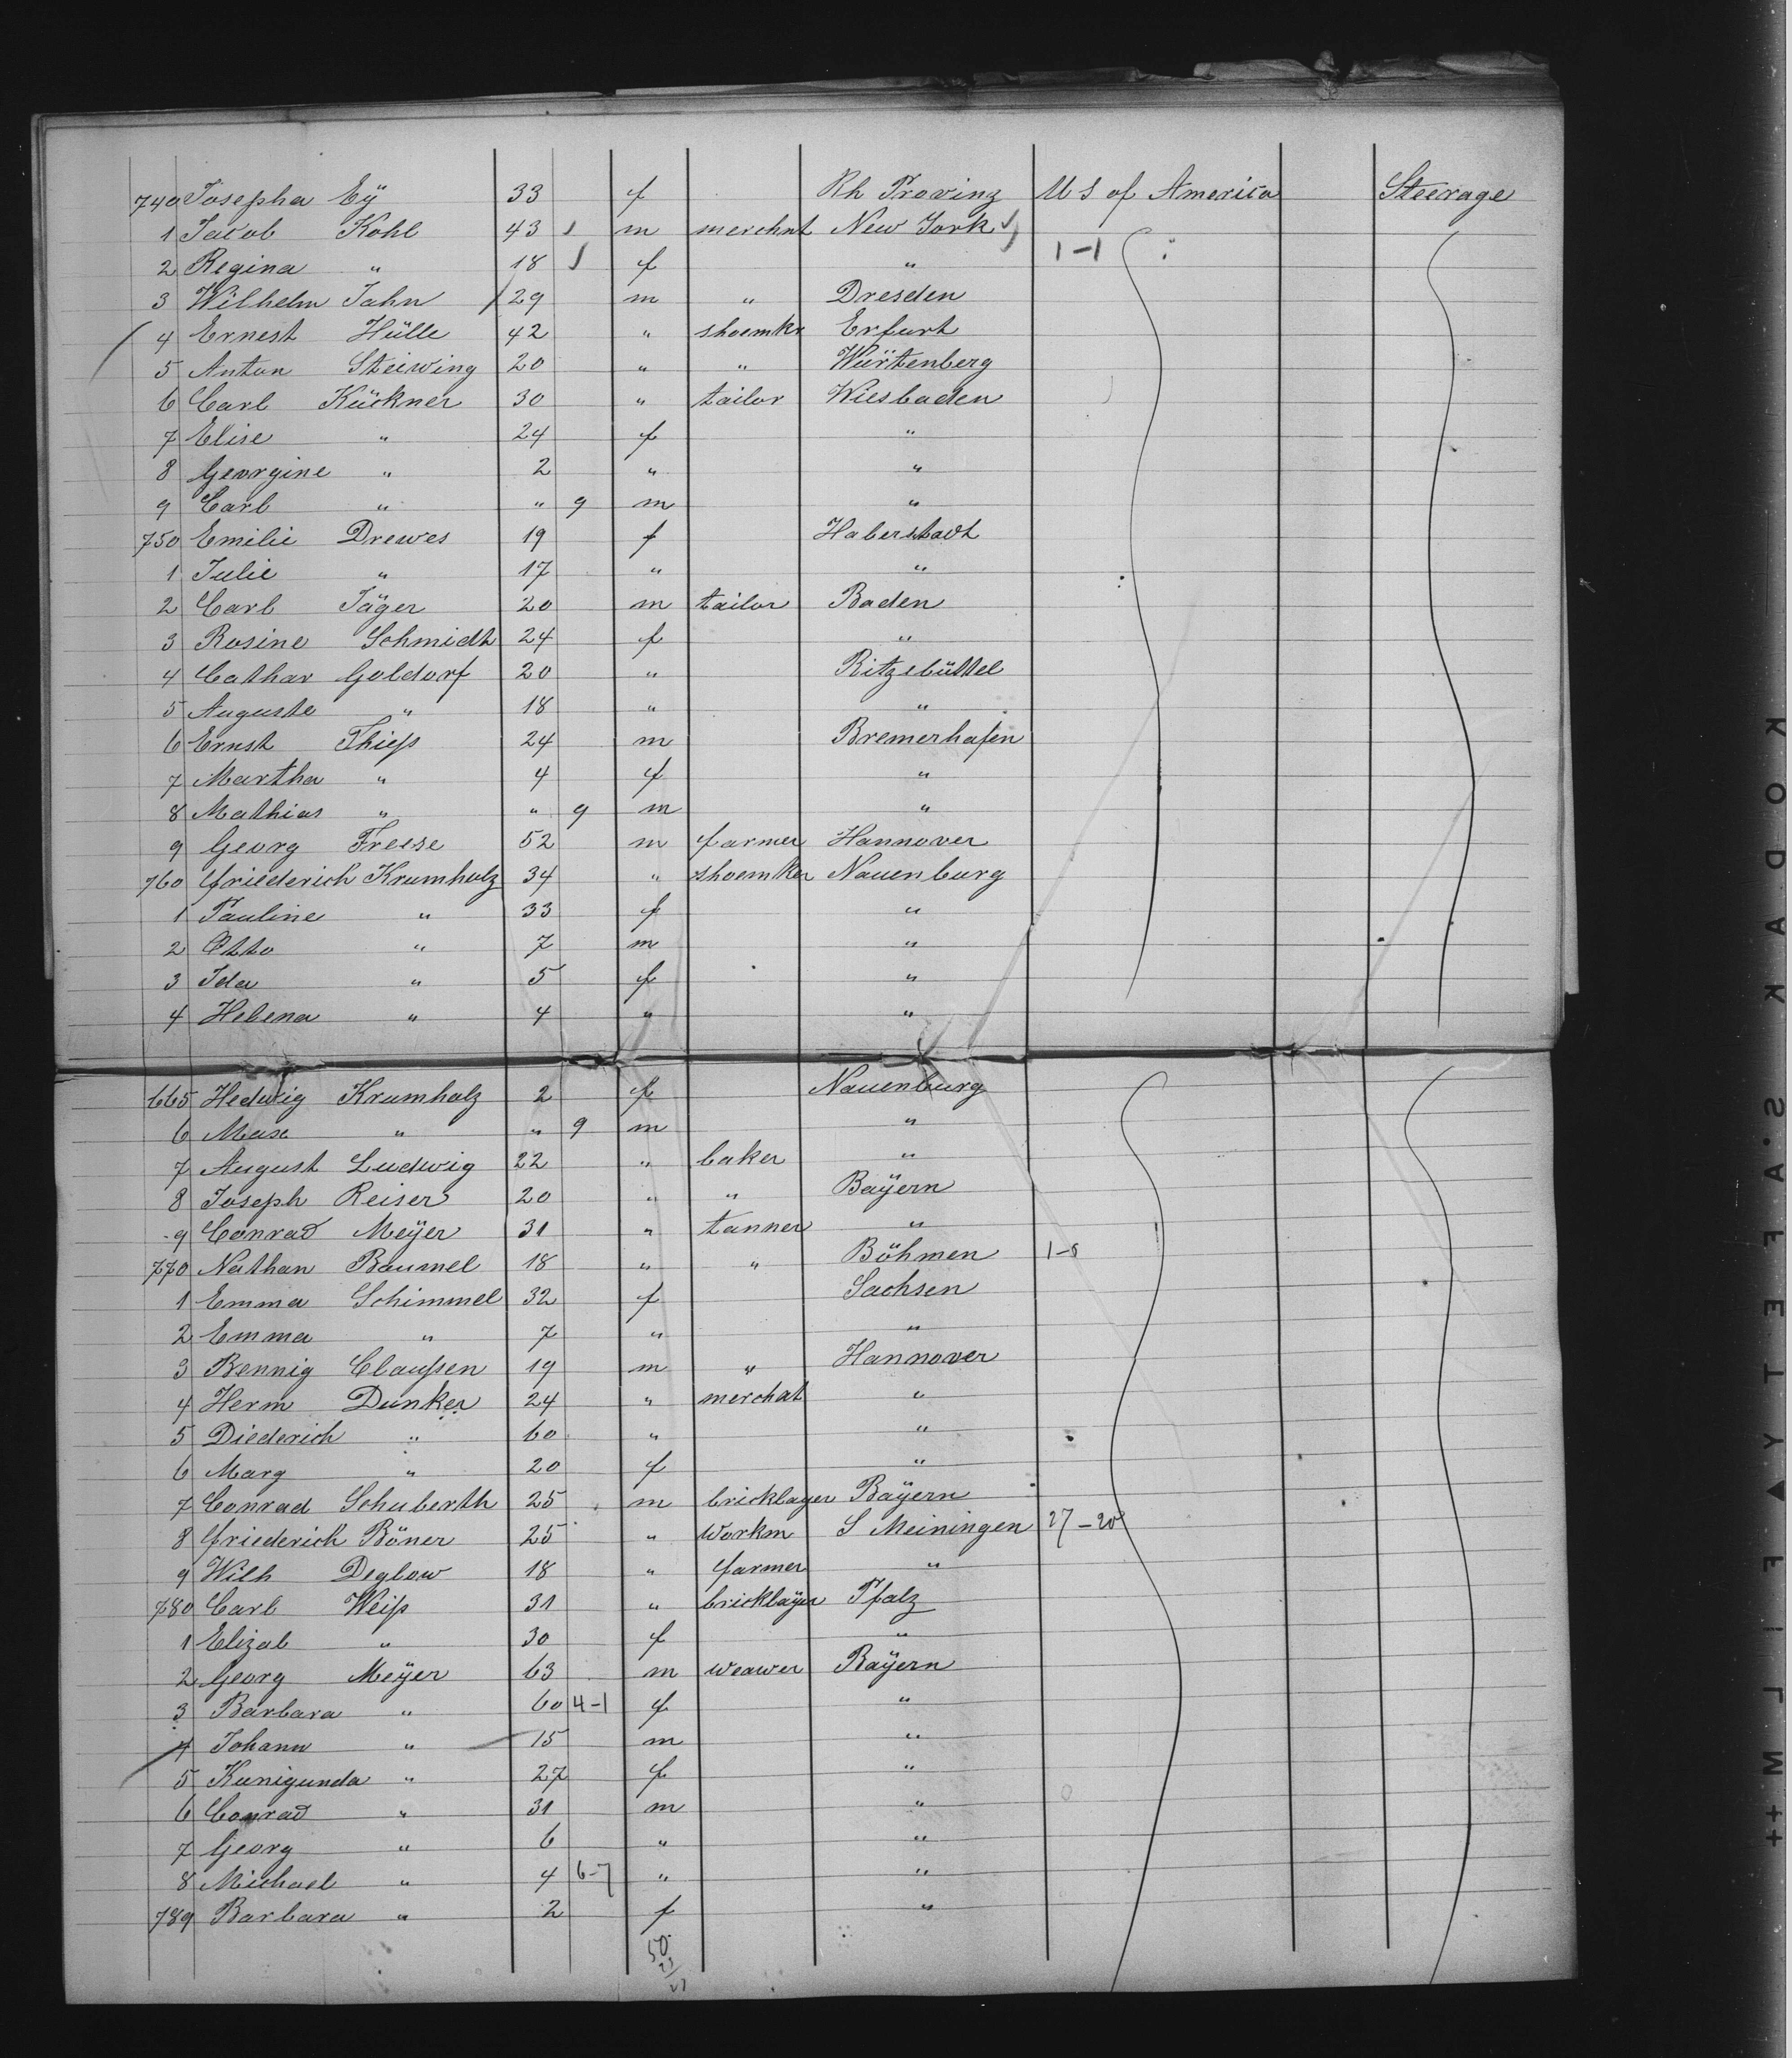 740 Josepha Eÿ 33 f Rh Provinz U S of America Steerage
1 Jacob Kohl 43 m merchnt New York
2 Regina " 18 f " 1-1
3 Wilhelm Jahn 29 m " Dresden
4 Ernest Hülle 42 " shoemkr Erfurt
5 Anton Steiwing 20 " " Würtenberg
6 Carl Kückner 30 " tailor Wiesbaden
7 Elise " 24 f "
8 Georgine " 2 " "
9 Carl " " 9 m "
750 Emilie Drewes 19 f Haberstadt
1 Julie " 17 " "
2 Carl Jäger 20 m tailor Baden
3 Rosine Schmidt 24 f "
4 Cathar Goldorf 20 " Ritzebüttel
5 Auguste " 18 " "
6 Ernst Thieß 24 m Bremerhafen
7 Martha " 4 f "
8 Mathias " " 9 m "
9 Georg Freese 52 m farmer Hannover
760 Friederich Krumholz 34 " shoemker Nauenburg
1 Pauline " 33 f "
2 Otto " 7 m "
3 Ida " 5 f "
4 Helena " 4 " "
665 Hedwig Krumholz 2 f Nauenburg
6 Max " " 9 m "
7 August Ludwig 22 " baker "
8 Joseph Reiser 20 " " Baÿern
9 Conrad Meÿer 31 " tanner "
770 Nathan Baumel 18 " " Böhmen
1 Emma Schimmel 32 f Sachsen
2 Emma " 7 " "
3 Bennig Claußen 19 m " Hannover
4 Herm Dunker 24 " merchat "
5 Diederich " 60 " "
6 Marg " 20 f "
7 Conrad Schuberth 25 m bricklayer Baÿern
8 Friederich Böner 25 " Workm S Meiningen 27-20
9 Wilh Deglow 18 " farmer "
780 Carl Weiß 31 " bricklaÿer Pfalz
1 Elizab " 30 f "
2 Georg Meÿer 63 m weawer Baÿern
3 Barbara " 60 4-1 f "
4 Johann " 15 m "
5 Kunigunda " 27 f "
6 Conrad " 31 m "
7 Georg " 6 " "
8 Michael " 4 6-7 " "
789 Barbara " 2 f "
50
KODAK S.A.FETY ▲ FILM ++